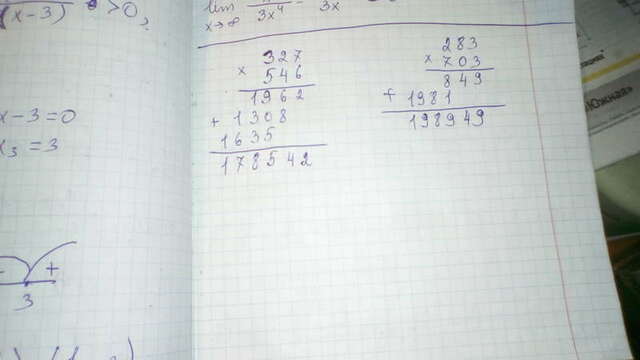 (x-3) >0,
lim
x→∞ 3x⁴ - 3x
x-3=0
x₃=3
- +
3
327
× 546
1962
+ 1308
1635
178542
283
× 703
849
+ 1981
198949
Южная»